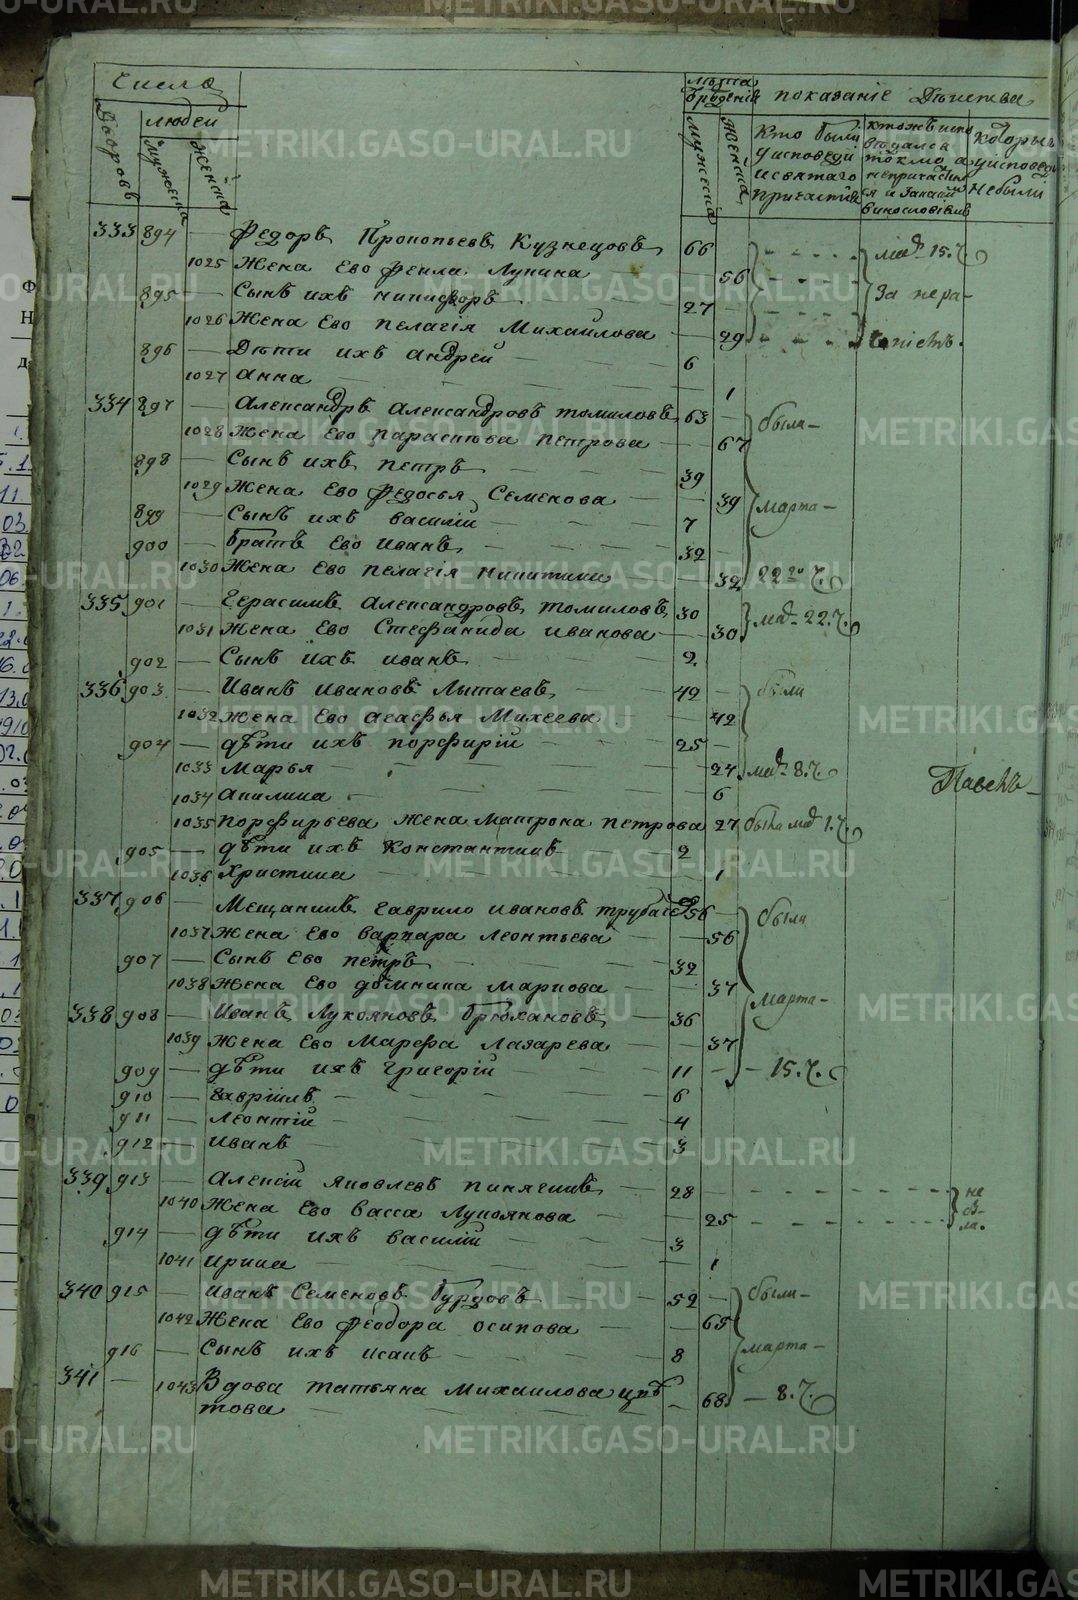 Числа
Лѣта
рожденія
показаніе Дѣйства
Дворовъ
людей
Мужеска
Женска
Мужеска
Женска
Кто были
у исповеди
и святаго
причастия
которыя
у исповеди
не были
333 894 — Федоръ Прокопьевъ Кузнецовъ 66 мар. 15. ч.
1025 Жена Ево Фекла Лукина 56
895 — Сынъ ихъ никифоръ 27 За нера-
1026 Жена Ево пелагія Михаилова 29
896 — Дѣти ихъ андрей 6
1027 анна 1
334 897 — Александръ Александровъ томиловъ 63 были
1028 Жена Ево параскова петрова 67
898 — Сынъ ихъ петръ 39
1029 Жена Ево федосья Семенова 39 марта
899 — Сынъ ихъ василій 7
900 — братъ Ево иванъ 32
1030 Жена Ево пелагія никитина 32 22 го ч.
335 901 — Герасимъ Александровъ томиловъ 30 мар. 22. ч.
1031 Жена Ево Стефанида иванова 30
902 — Сынъ ихъ иванъ 2
336 903 — Иванъ ивановъ Лытаевъ 49 были
1032 Жена Ево агафья Михеева 42
904 — дѣти ихъ порфирій 25
1033 Марья 24 мар. 8. ч.
1034 Акилина 6
1035 порфирьева жена матрона петрова 27 была мар. 1. ч.
905 — дѣти ихъ константинъ 2
1036 Христина 1
337 906 — Мещанинъ гаврило ивановъ 56 были
1037 Жена Ево варвара леонтьева 56
907 — Сынъ Ево петръ 32
1038 Жена Ево домника маркова 37
338 908 — Иванъ Лукояновъ брюхановъ 36 марта
1039 Жена Ево Марфа Лазарева 37
909 — дѣти ихъ григорій 11 15. ч.
910 — гаврійлъ 6
911 — леонтій 4
912 — иванъ 3
339 913 — Алексій яковлевъ 28 не
1040 Жена Ево васса лукоянова 25 бы-
914 — дѣти ихъ василій 3 ла.
1041 ирина 1
340 915 — Иванъ Семеновъ бурцовъ 52 были
1042 Жена Ево феодора осипова 65
916 — Сынъ ихъ исакъ 8 марта
341 — 1043 Вдова татьяна михаилова цвѣ
това 68 8. ч.
METRIKI.GASO-URAL.RU